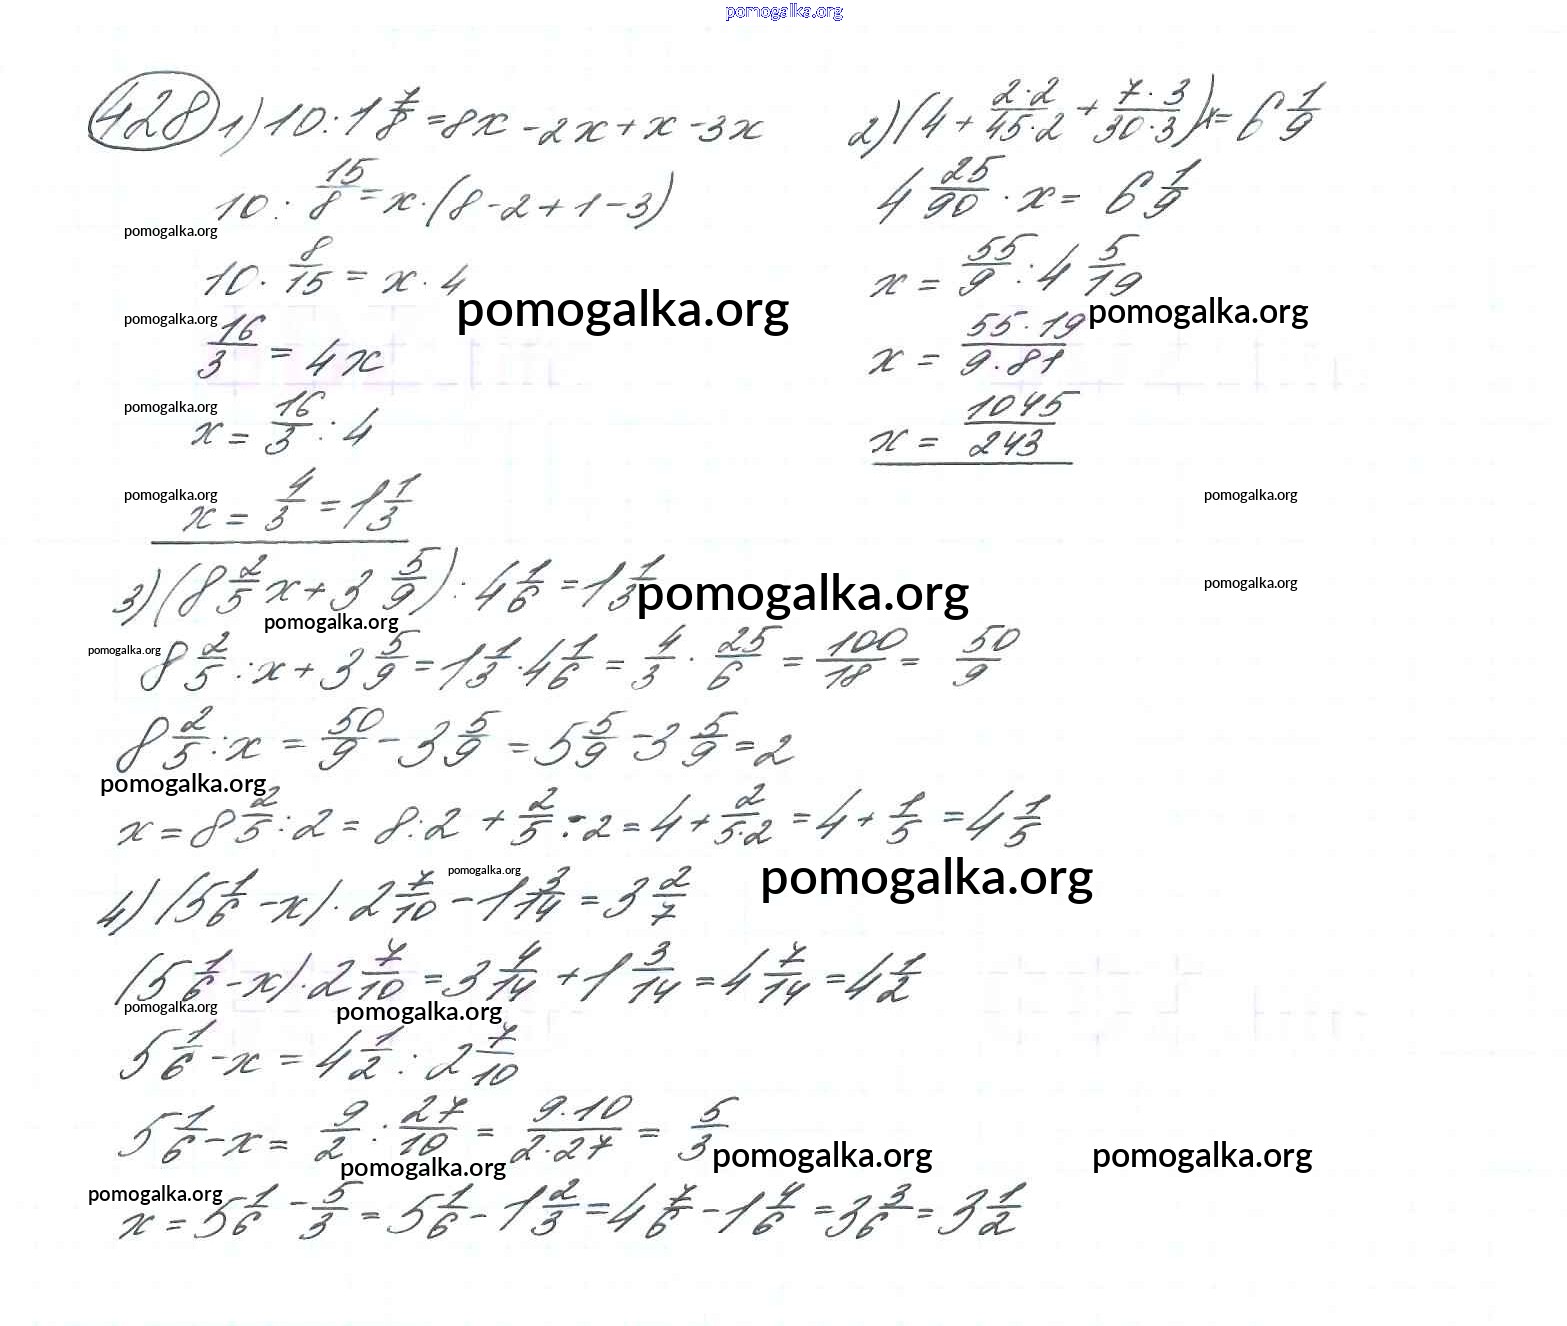 pomogalka.org
428 1) 10 : 1 7/8 = 8x - 2x + x - 3x
10 : 15/8 = x · (8 - 2 + 1 - 3)
pomogalka.org
10 · 8/15 = x · 4
pomogalka.org
pomogalka.org
16/3 = 4x
pomogalka.org
x = 16/3 : 4
pomogalka.org
x = 4/3 = 1 1/3
2) (4 + 2·2/45·2 + 7·3/30·3)x = 6 1/9
4 25/90 · x = 6 1/9
x = 55/9 : 4 5/19
pomogalka.org
x = 55·19/9·81
x = 1045/243
pomogalka.org
pomogalka.org
3) (8 2/5 x + 3 5/9) : 4 1/6 = 1 1/3
pomogalka.org
pomogalka.org
pomogalka.org
8 2/5 : x + 3 5/9 = 1 1/3 · 4 1/6 = 4/3 · 25/6 = 100/18 = 50/9
8 2/5 : x = 50/9 - 3 5/9 = 5 5/9 - 3 5/9 = 2
pomogalka.org
x = 8 2/5 : 2 = 8 : 2 + 2/5 : 2 = 4 + 2/5·2 = 4 + 1/5 = 4 1/5
pomogalka.org
pomogalka.org
4) (5 1/6 - x) · 2 7/10 - 1 3/14 = 3 2/7
(5 1/6 - x) · 2 7/10 = 3 4/14 + 1 3/14 = 4 7/14 = 4 1/2
pomogalka.org
pomogalka.org
5 1/6 - x = 4 1/2 : 2 7/10
5 1/6 - x = 9/2 : 27/10 = 9·10/2·27 = 5/3
pomogalka.org
pomogalka.org
pomogalka.org
pomogalka.org
x = 5 1/6 - 5/3 = 5 1/6 - 1 2/3 = 4 7/6 - 1 4/6 = 3 3/6 = 3 1/2